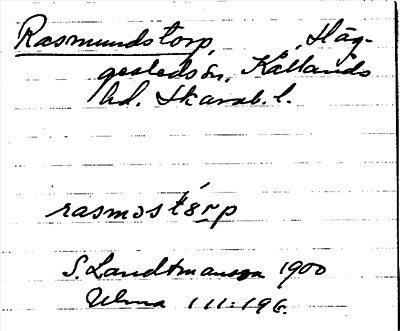 Rasmundstorp, Häg-
gesleds sn, Kållands
hd. Skarab. l.
rasmɔstȯrp
S. Landtmanson 1900
Ulma 111:196.